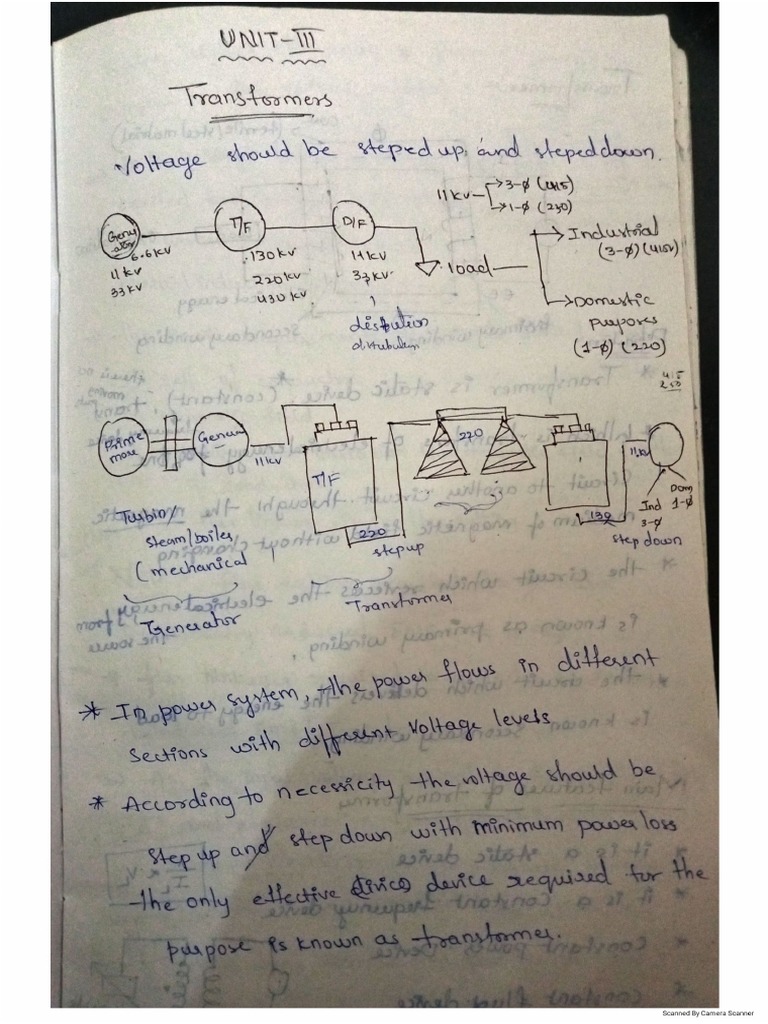 UNIT-III
Transformers
Voltage should be steped up, and steped down.
11kv
3-ϕ (415)
1-ϕ (230)
Genu
ator
6.6kv
11kv
33kv
T/F
130kv
220kv
430kv
D/F
11kv
33kv
load
Industrial
(3-ϕ) (415v)
Domestic
purpores
(1-ϕ) (220)
415
230
Prime
mou
Genu
11kv
T/F
220
stepup
220
139
step down
11kv
Ind
3-ϕ
Dom
1-ϕ
Turbin/
steam/boiler
(mechanical
Generator
Transformer
* In power system, the power flows in different
sections with different voltage levels
* According to necessicity the voltage should be
step up and step down with minimum power loss
the only effective device required for the
purpose is known as transformer.
Scanned By Camera Scanner